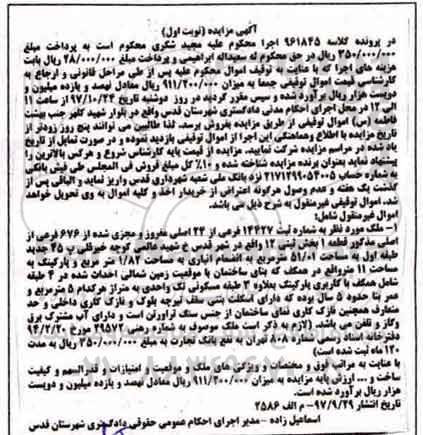 آگهی مزایده (نوبت اول)
در پرونده کلاسه ۹۶۱۸۴۵ اجرا محکوم علیه مجید شکری محکوم است به پرداخت مبلغ
۳۵۰/۰۰۰/۰۰۰ ریال در حق محکوم له سعیداله ابراهیمی و پرداخت مبلغ ۲۸/۰۰۰/۰۰۰ ریال بابت
هزینه های اجرا که با عنایت به توقیف اموال محکوم علیه پس از طی مراحل قانونی و ارجاع به
کارشناسی قیمت اموال توقیفی جمعا به میزان ۹۱۱/۲۰۰/۰۰۰ ریال معادل نهصد و یازده میلیون و
دویست هزار ریال برآورد شده و سپس مقرر گردید در روز دوشنبه تاریخ ۹۷/۱۰/۲۴ از ساعت ۱۱
الی ۱۲ در محل اجرای احکام مدنی دادگستری شهرستان قدس واقع در بلوار شهید کلهر جنب بهشت
فاطمه (س) اموال توقیفی از طریق مزایده بفروش برسد. لذا طالبین می توانند پنج روز زودتر از
تاریخ مزایده با اطلاع وهماهنگی این اجرا از اموال توقیفی بازدید نموده و در صورت تمایل از تاریخ
یاد شده در مراسم مزایده شرکت نمایند. مزایده از قیمت پایه کارشناس شروع و هرکس بالاترین را
پیشنهاد نماید بعنوان برنده مزایده شناخته شده و ۱۰٪ کل مبلغ فروش فی المجلس طی فیش بانکی
به شماره حساب ۲۱۷۱۲۹۹۰۵۴۰۰۵ نزد بانک ملی شعبه شهرداری قدس واریز نماید و الباقی پس از
گذشت یک هفته و عدم وصول هرگونه اعتراض از خریدار اخذ و کلیه اموال به وی تحویل خواهد
شد. اموال توقیفی غیرمنقول به شرح ذیل می باشد.
اموال غیرمنقول شامل:
۱- ملک مورد نظر به شماره ثبت ۱۴۶۲۷ فرعی از ۲۴ اصلی مفروز و مجزی شده از ۶۷۶ فرعی از
اصلی مذکور قطعه ۱ بخش ثبتی ۱۲ واقع در شهر قدس خ شهید غالمی کوچه خیرطلبی پ ۴۵ جدید
طبقه اول به مساحت ۵۱/۰۱ مترمربع به انضمام انباری به مساحت ۱/۸۲ متر مربع و پارکینگ به
مساحت ۱۱ متر واقع در همکف که بنای ساختمان با موقعیت زمین شمالی احداث شده در ۴ طبقه
شامل همکف با کاربری پارکینگ بعلاوه ۳ طبقه مسکونی تک واحدی به متراژ هرکدام ۵ مترمربع و
عمر بنا حدود ۵ سال بوده که دارای اسکلت بتنی سقف تیرچه بلوک و نازک کاری داخلی در حد
متعارف همچنین نازک کاری نمای ساختمان از جنس سنگ تراورتن است و دارای آب مشترک برق
وگاز و تلفن می باشد. (لازم به ذکر است ملک موصوف به شماره رهنی ۲۹۵۷۲ مورخ ۹۴/۲/۲۰
دفترخانه اسناد رسمی شماره ۸۰۸ تهران به نفع بانک تجارت به مبلغ ۳۵۰/۰۰۰/۰۰۰ ریال به مدت
۱۲۰ ماه ثبت شده است)
با عنایت به مراتب فوق و مختصات و ویژگی های ملک و موقعیت و امتیازات و قدرالسهم و کیفیت
ساخت و ... ارزش پایه مزایده به میزان ۹۱۱/۲۰۰/۰۰۰ ریال معادل نهصد و یازده میلیون و دویست
هزار ریال برآورد شده است.
تاریخ انتشار ۹۷/۹/۲۹- م الف ۲۵۸۶
اسماعیل زاده - مدیر اجرای احکام عمومی حقوقی دادگستری شهرستان قدس